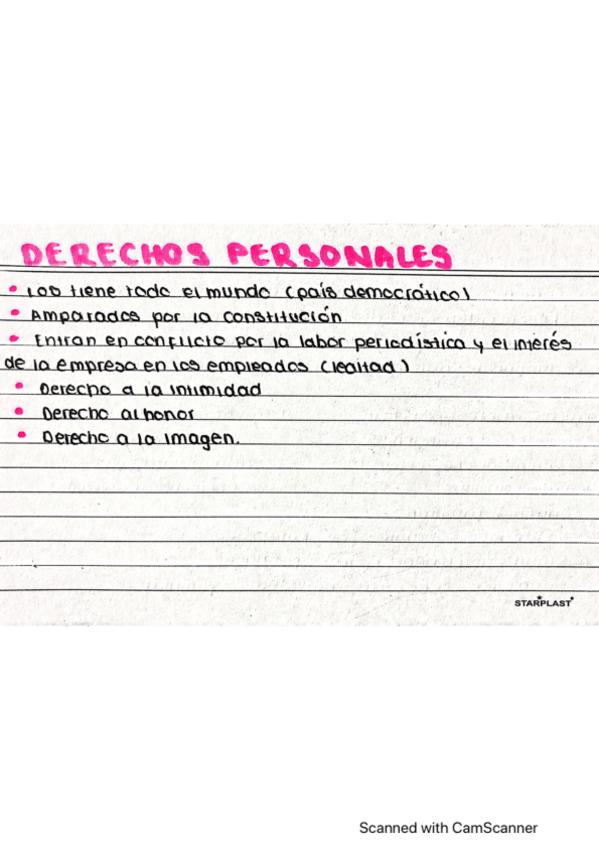 DERECHOS PERSONALES
• Los tiene todo el mundo (país democrático)
• Amparados por la constitución
• Entran en conflicto por la labor periodística y el interés
de la empresa en los empleados (lealtad)
• Derecho a la intimidad
• Derecho al honor
• Derecho a la imagen.
STARPLAST
Scanned with CamScanner